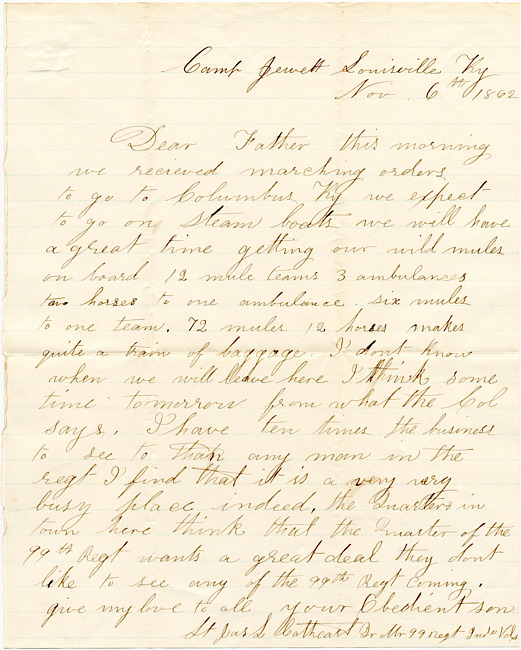 Camp Jewett Louisville Ky
Nov. 6th 1862
Dear Father this morning
we recieved marching orders
to go to Columbus Ky we expect
to go on steam boats we will have
a great time getting our wild mules
on board 12 mule teams 3 ambulances
two horses to one ambulance. six mules
to one team. 72 mules 12 horses makes
quite a train of baggage. I dont know
when we will leave here I think some
time tomorrow from what the Col
says. I have ten times the business
to see to than any man in the
regt I find that it is a very very
busy place, indeed, the Quarters in
town here think that the Quarter of the
99th Regt wants a great deal they dont
like to see any of the 99th Regt Coming.
give my love to all your Obedient son
Lt Jas S Cathcart Qr Mr 99 regt Inda Vols